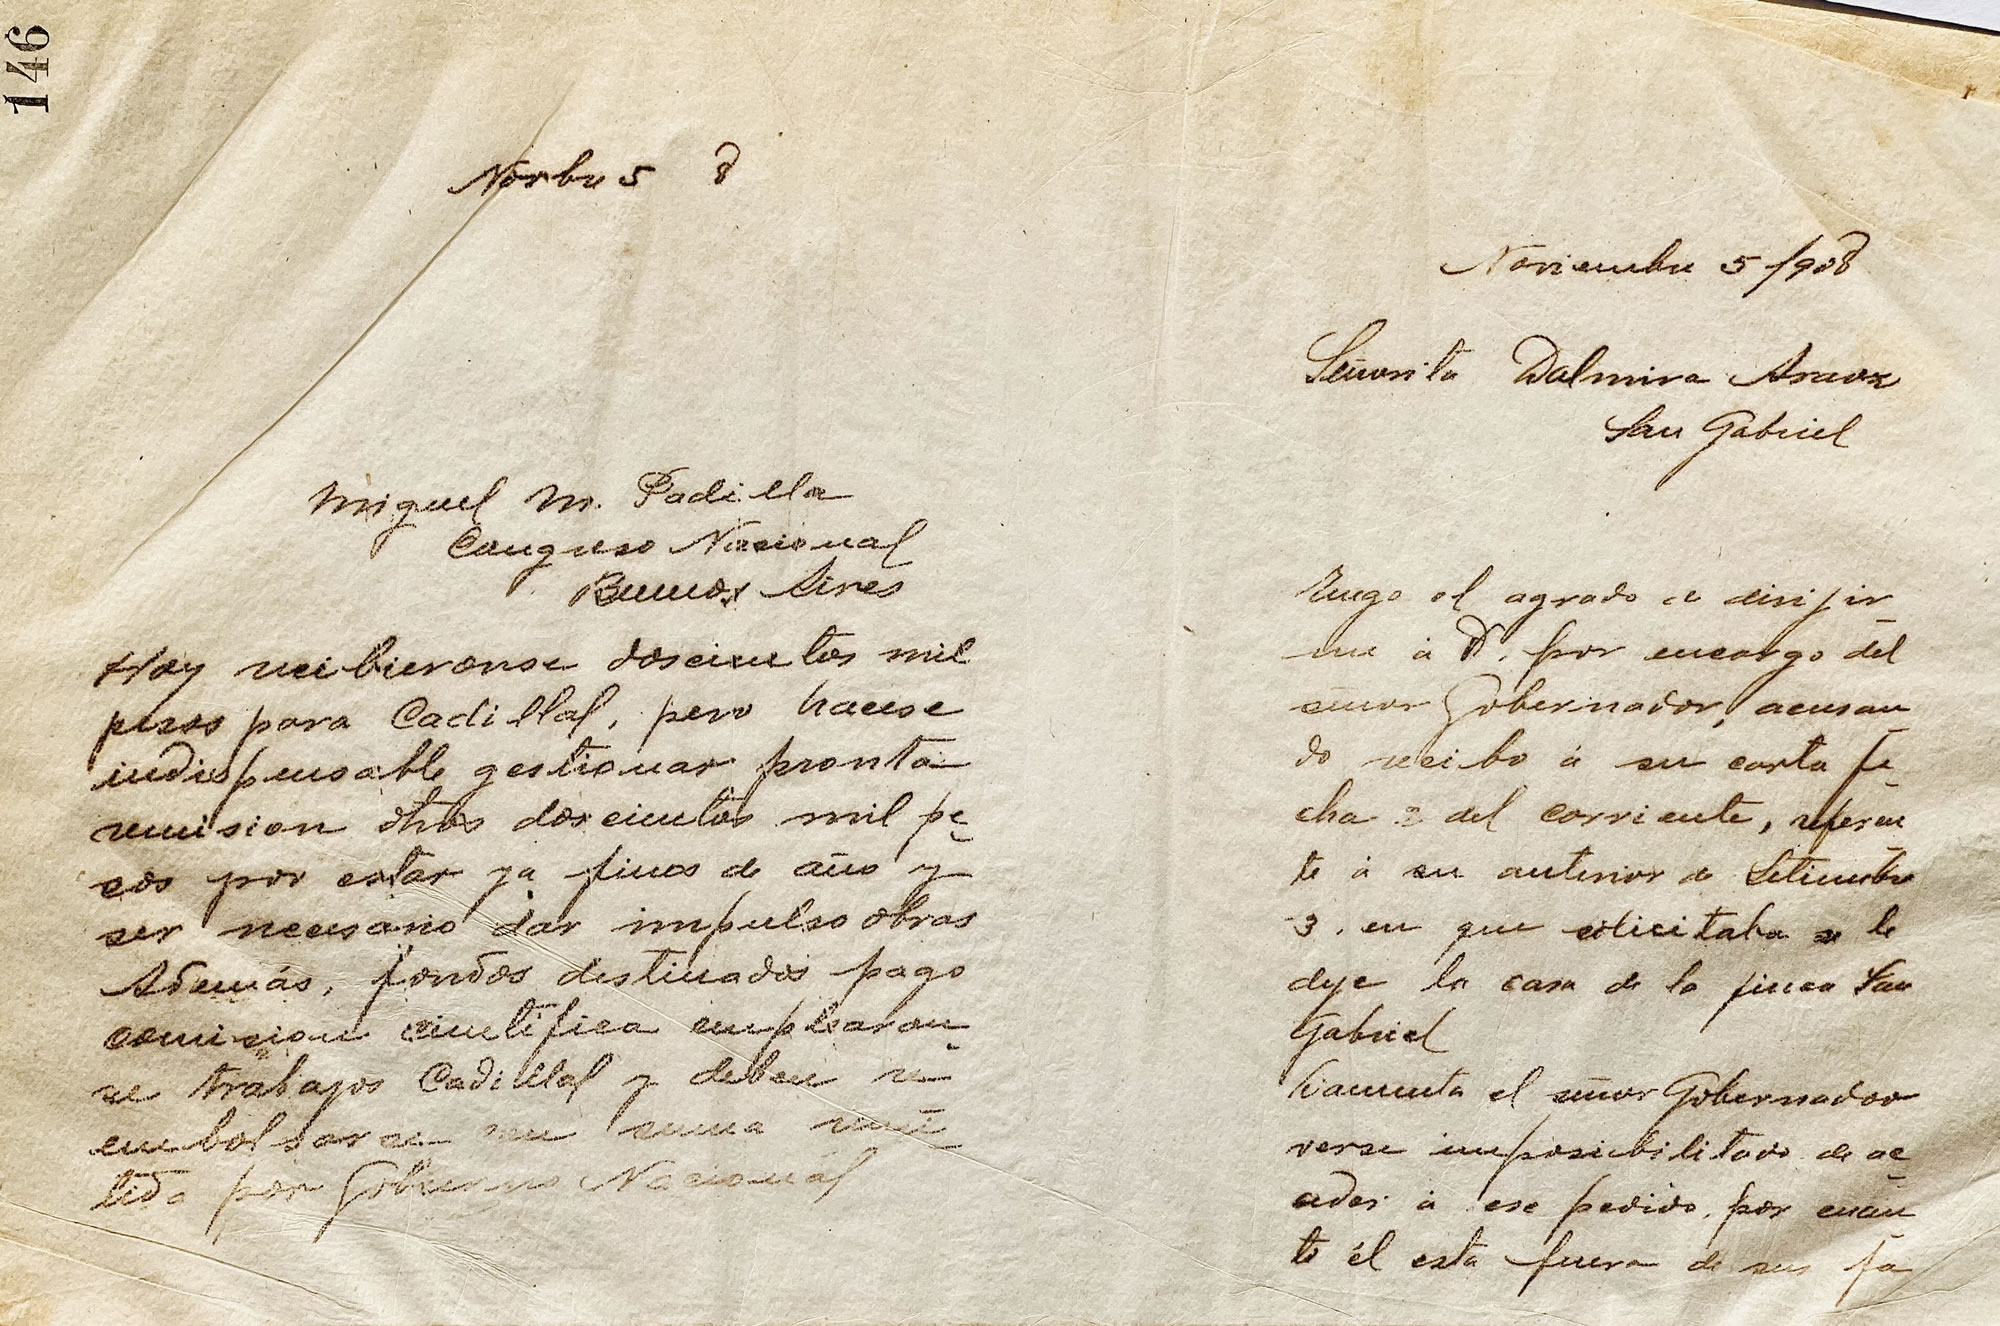 146
Novbre 5 8
Miguel M. Padilla
Congreso Nacional
Buenos Aires
Hoy recibieronse doscientos mil
pesos para Cadillal, pero hacese
indispensable gestionar pronta
remision otros doscientos mil pe-
sos por estar ya fines de año y
ser necesario dar impulso obras
Además, fondos destinados pago
comision cientifica emplearon-
se trabajos Cadillal y deben re-
embolsarse en suma remi-
tida por Gobierno Nacional
Noviembre 5/908
Señorita Dalmira Araoz
San Gabriel
Tengo el agrado de dirijir-
me á V. por encargo del
señor Gobernador, acusan-
do recibo á su carta fe-
cha 3 del corriente, referen-
te á su anterior de Setiembre
3. en que solicitaba se le
deje la casa de la finca San
Gabriel
Lamenta el señor Gobernador
verse imposibilitado de ac-
ceder á ese pedido, por cuan-
to él esta fuera de sus fa-